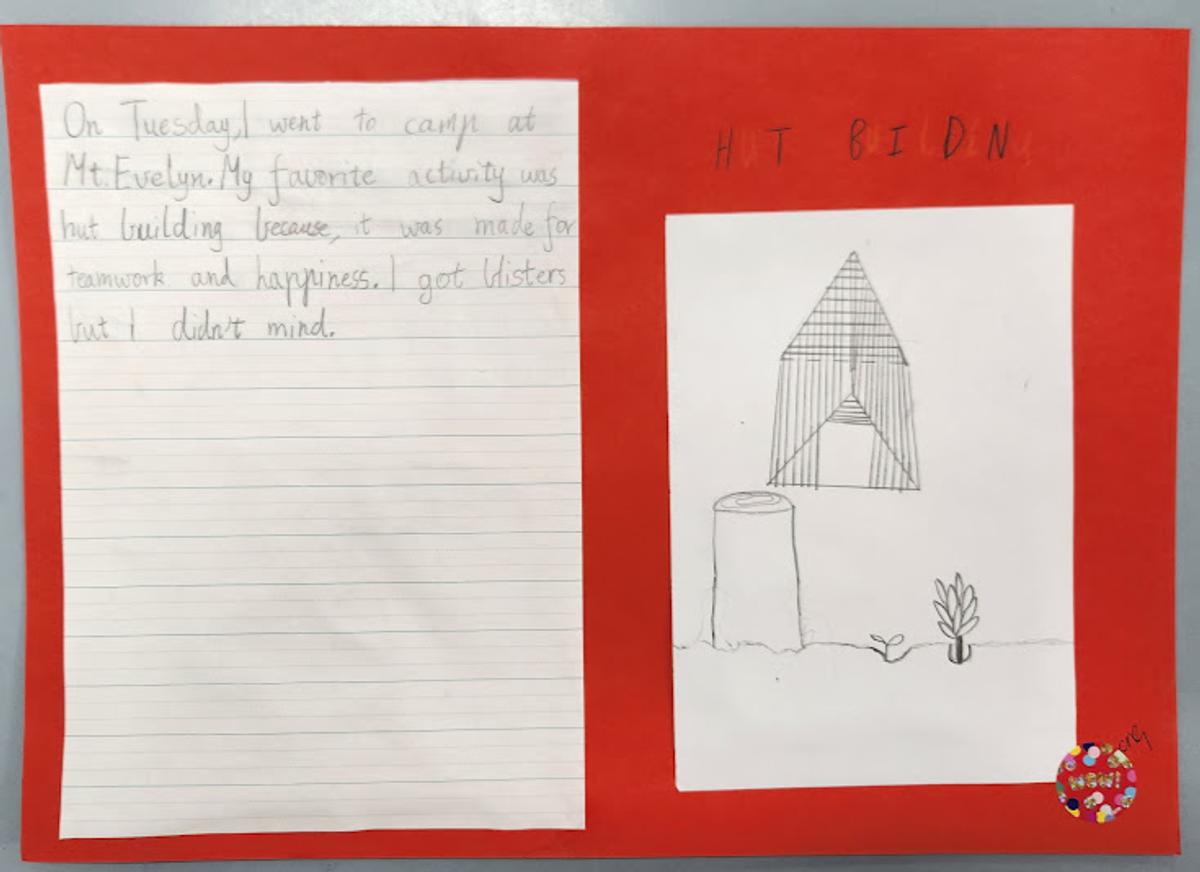 On Tuesday, I went to camp at
Mt. Evelyn. My favorite activity was
hut building because, it was made for
teamwork and happiness. I got blisters
but I didn't mind.
HUT BUILDING
WOW!